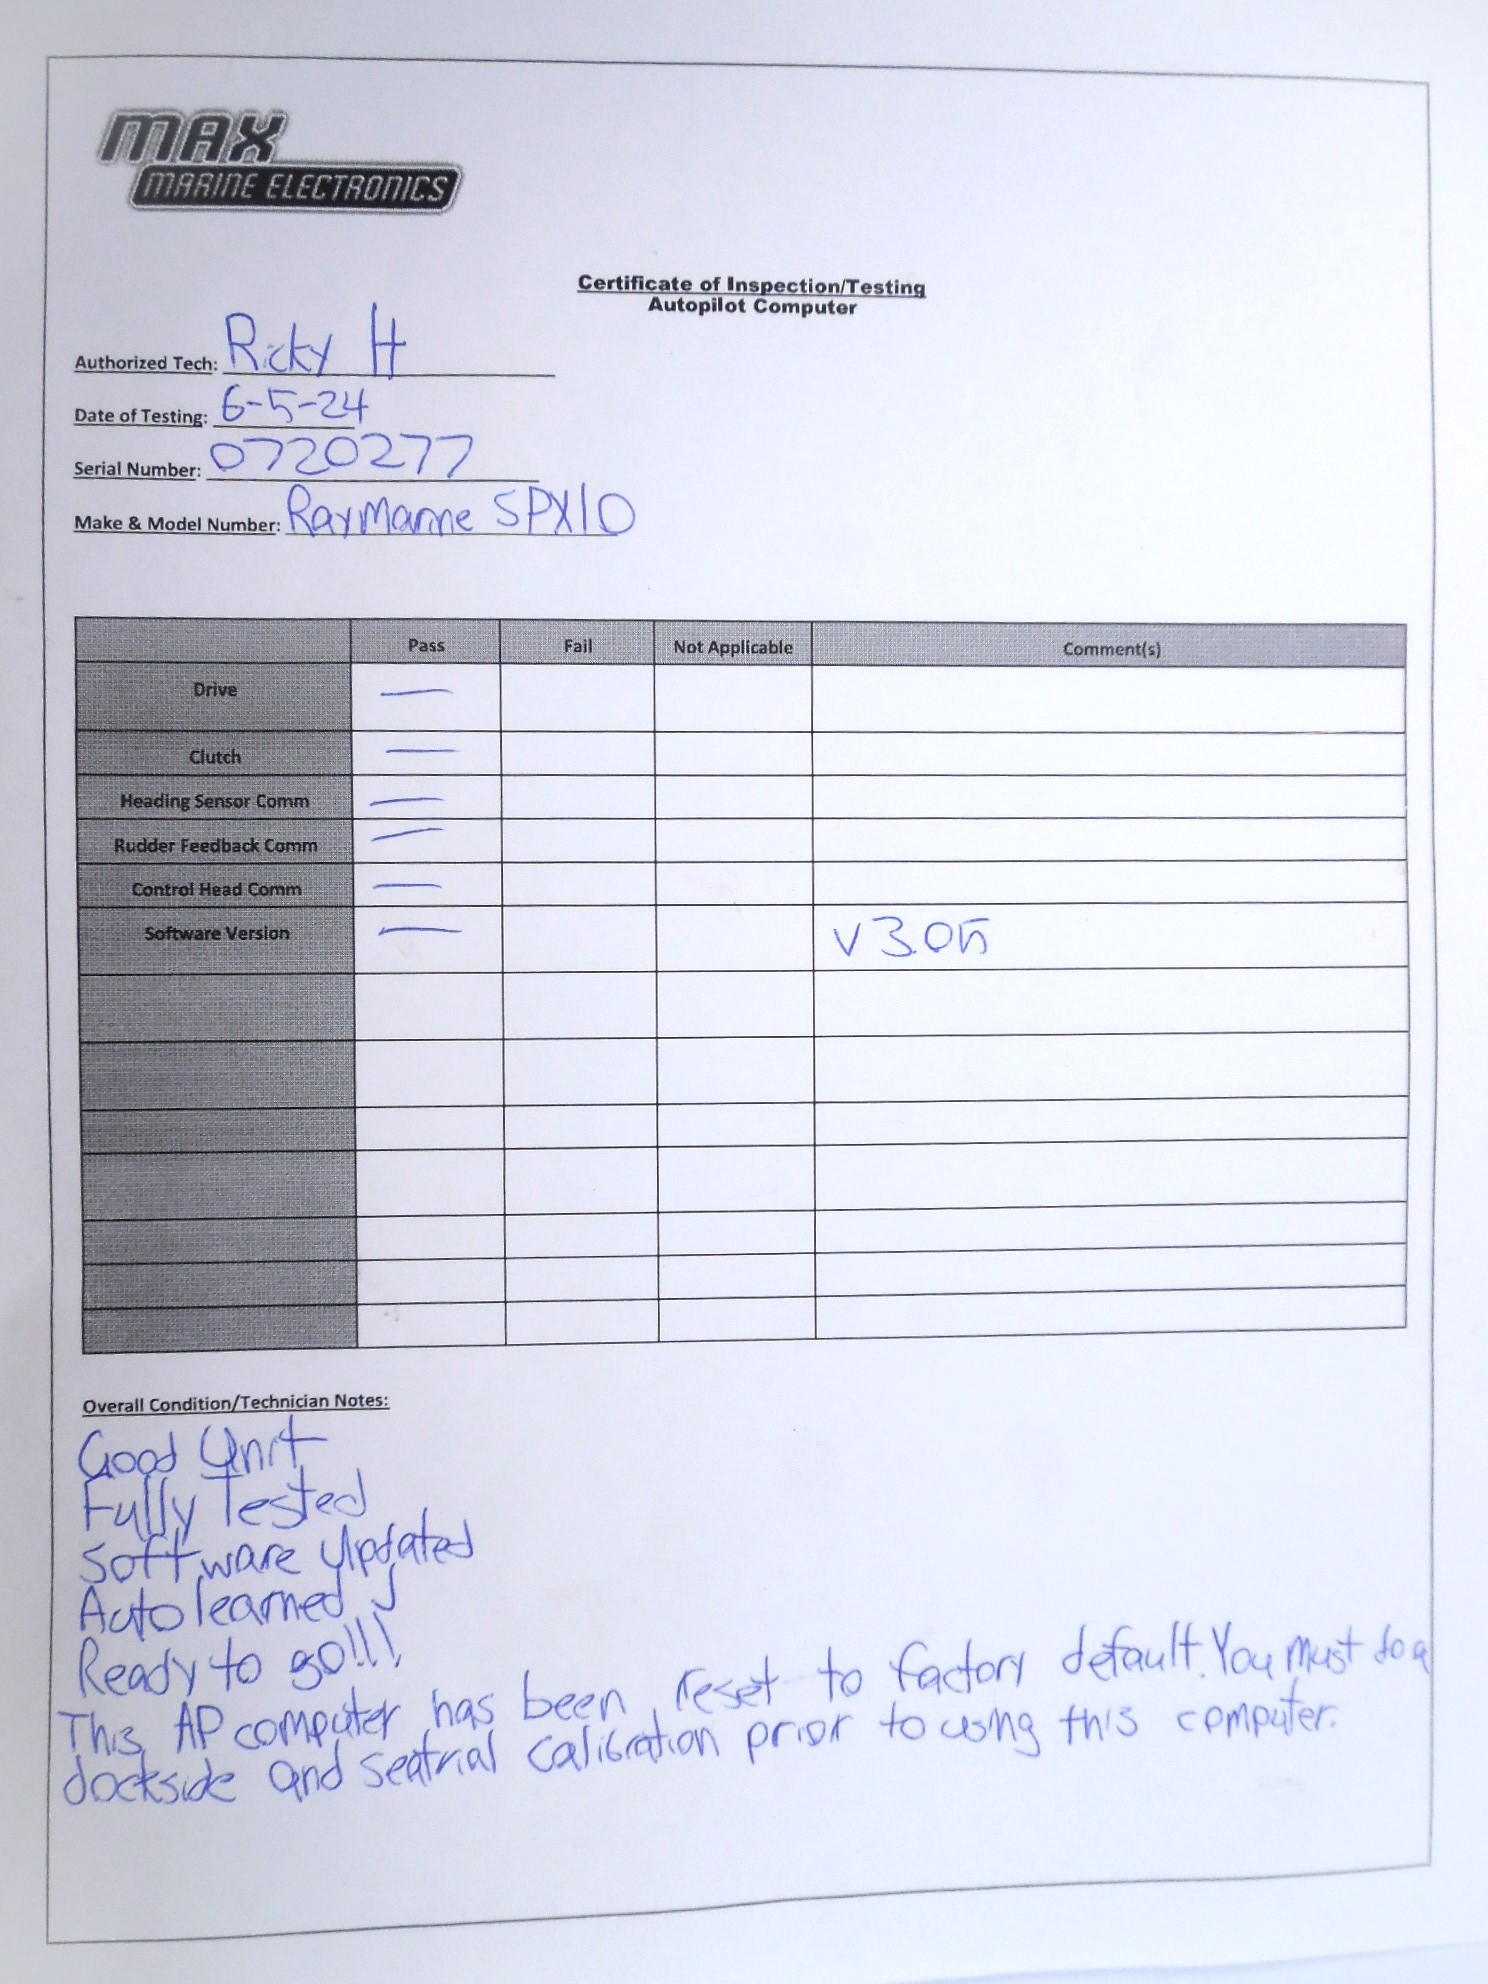 MAX
MARINE ELECTRONICS
Certificate of Inspection/Testing
Autopilot Computer
Authorized Tech: Ricky H
Date of Testing: 6-5-24
Serial Number: 0720277
Make & Model Number: RayMarine SPX10
Pass Fail Not Applicable Comment(s)
Drive —
Clutch —
Heading Sensor Comm —
Rudder Feedback Comm —
Control Head Comm —
Software Version — v 3.05
Overall Condition/Technician Notes:
Good Unit
Fully Tested
Software Updated
Auto learned
Ready to go!!!
This AP computer has been reset to factory default. You must do a
dockside and seatrial calibration prior to using this computer.